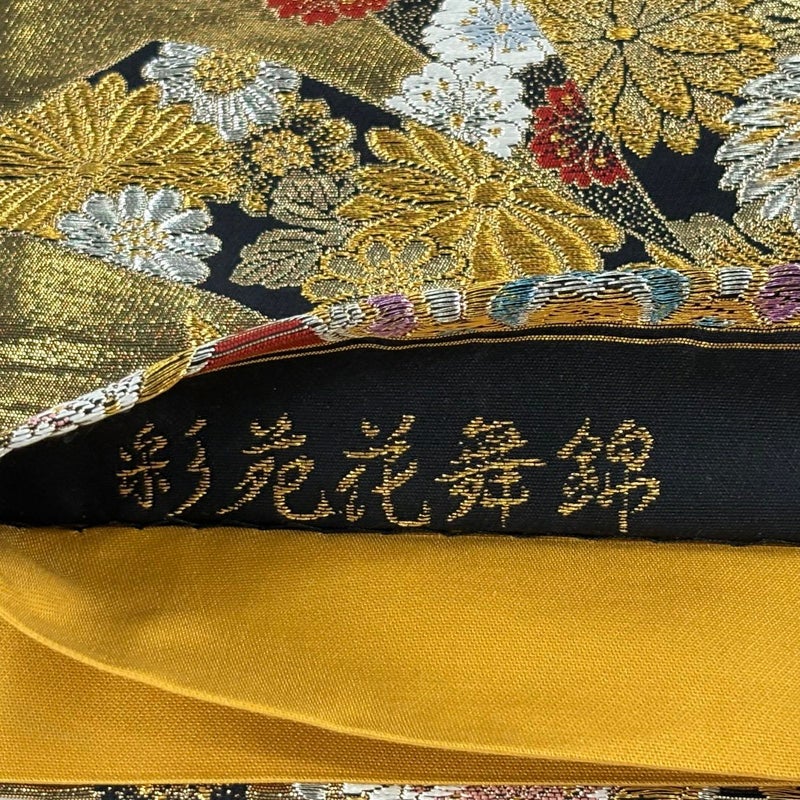 彩苑花舞錦